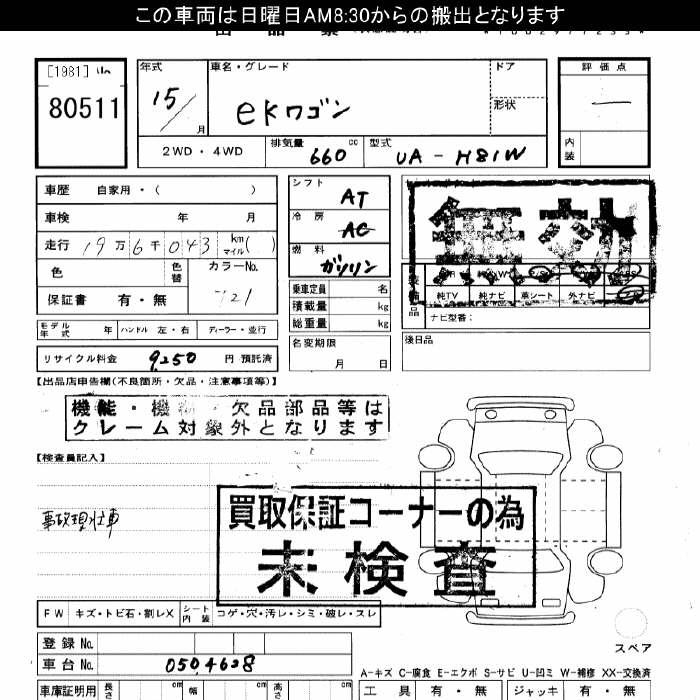 この車両は日曜日AM8:30からの搬出となります
[1981]
80511
年式
15/
月
車名・グレード
eKワゴン
ドア
形状
評価点
内装
2WD・4WD
排気量
660
cc
型式
UA-H81W
車歴
自家用・（　　）
車検
年　月
走行
19万6千043
km
マイル
(　)
色
色替
カラーNo.
保証書
有・無
モデル年式
年
ハンドル
左・右
ディーラー・並行
リサイクル料金
9,250
円 預託済
シフト
AT
冷房
AC
燃料
ガソリン
乗車定員
名
積載量
kg
総重量
kg
名変期限
月　日
無効
純TV
純ナビ
革シート
外ナビ
ナビ型番：
後日品
【出品店申告欄(不良箇所・欠品・注意事項等)】
機能・機 ・欠品部品等は
クレーム対象外となります
【検査員記入】
事故現状車
買取保証コーナーの為
未検査
FW
キズ・トビ石・割レX
シート内装
コゲ・穴・汚レ・シミ・破レ・スレ
登録No.
車台No.
0504628
スペア
A-キズ C-腐食 E-エクボ S-サビ U-凹ミ W-補修 XX-交換済
車庫証明用
長さ
cm
幅
cm
高さ
cm
工具
有・無
ジャッキ
有・無